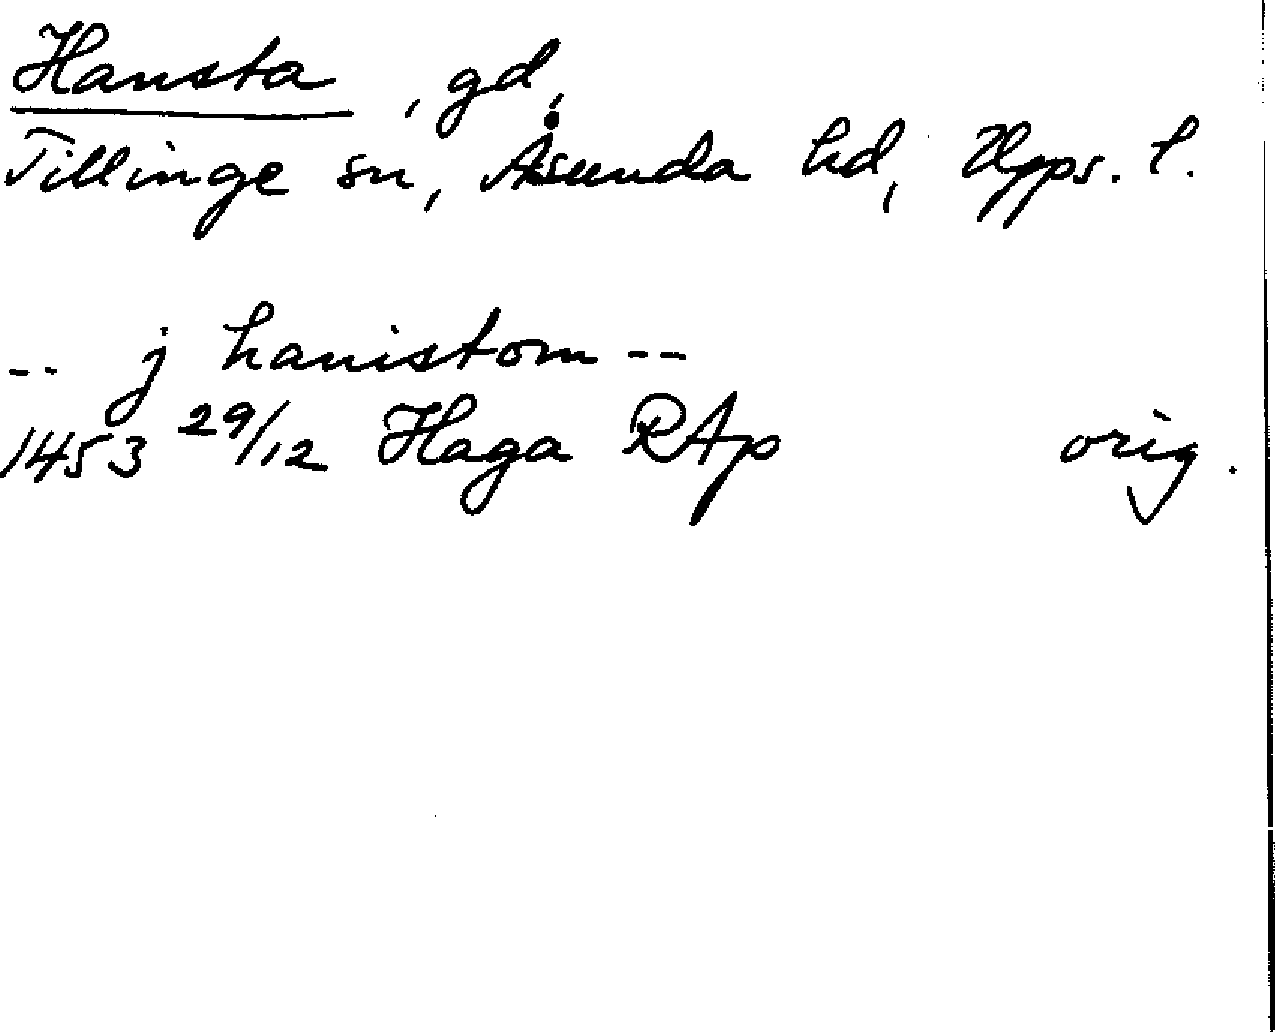 Hansta, gd,
Tillinge sn, Åsunda hd, Upps. l.
-- j hanistom --
1453 29/12 Haga RAp orig.